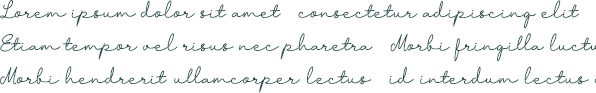 Lorem ipsum dolor sit amet consectetur adipiscing elit
Etiam tempor vel risus nec pharetra Morbi fringilla luctu
Morbi hendrerit ullamcorper lectus id interdum lectus